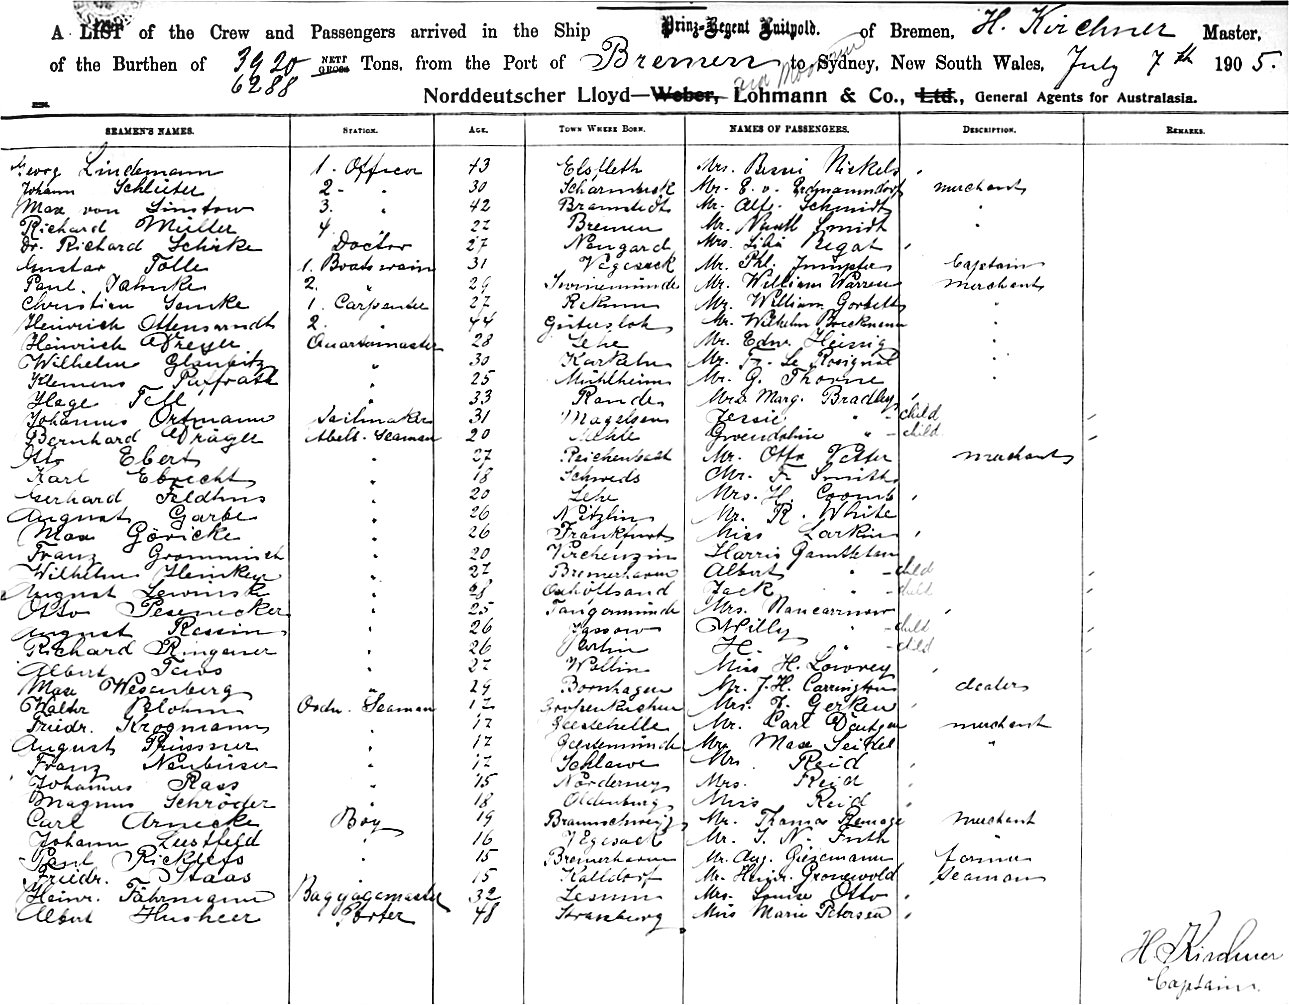 A LIST of the Crew and Passengers arrived in the Ship Prinz-Regent Luitpold. of Bremen, H. Kirchner Master,
of the Burthen of 3920 NETT GROSS Tons, from the Port of Bremen to Sydney, New South Wales, July 7th 1905.
6288 via
Norddeutscher Lloyd—Weber, Lohmann & Co., Ltd., General Agents for Australasia.
SEAMEN'S NAMES. STATION. AGE. TOWN WHERE BORN. NAMES OF PASSENGERS. DESCRIPTION. REMARKS.
Georg Lindemann 1. Officer 43 Elsfleth Mrs. Bessie Nickels
Johann Schlüter 2. " 30 Scharmbeck Mr. E. v. Erdmannsdorf merchant
Max von Sinstow 3. " 42 Bramstedt Mr. Alf. Schmidt "
Richard Müller 4. " 27 Bremen Mr. Smidt "
Dr. Richard Schicke Doctor 27 Naugard Mrs. Lilli Regat
Gustav Tolle 1. Boatswain 31 Vegesack Mr. Phl. Captain
Paul Jahnke 2. " 29 Swinemünde Mr. William Warren merchant
Christian Lemke 1. Carpenter 27 Rekum Mr. William Gorbett "
Heinrich Ottensarndt 2. " 44 Gütersloh Mr. Wilhelm Brickmann "
Heinrich Dreyer Quartermaster 28 Lehe Mr. Edw. Heissig "
Wilhelm Glaubitz " 30 Karkeln Mr. Fr. Le Rosignol "
Klemens Puffrath " 25 Mühlheim Mr. G. Thorne "
Hage Tell " 33 Rande Mrs. Marg. Bradley
Johannes Ortmann Sailmaker 31 Magelsen Jessie " - child
Bernhard Dräger Abelb. Seaman 20 Gwendoline " - child
Otto Ebert " 27 Reichenbach Mr. Otto Vetter merchant
Karl Ebrecht " 18 Schweds Mr. Fr. Smith
Gerhard Feldhus " 20 Lehe Mrs. H. Coomb
August Garbe " 26 Nitzlin Mr. R. White
Max Göricke " 26 Frankfurt Miss Larkin
Franz Grommisch " 20 Virchenzin Harris Gamtleton
Wilhelm Heinkeyer " 27 Bremerhaven Albert " - child
August Lewinski " 28 Jack " - child
Otto Pesenecker " 25 Tangermünde Mrs. Nancarrow
August Rossin " 26 Jassow Willy " - child
Richard Ringener " 26 Berlin H. " - child
Albert Tews " 27 Wollin Miss H. Lowrey
Max Wesenberg " 29 Bornhagen Mr. J. H. Carrington dealer
Walter Blohm Ordn. Seaman 17 Grossenkirchen Mrs. F. Gerken
Friedr. Krogmann " 17 Geestehelle Mr. Carl Däntgen merchant
August Prüssner " 17 Geestemünde Mr. Max Seidel "
Franz Neubüser " 17 Schlawe Mrs. Reid
Johannes Rass " 15 Norderney Mrs. Reid
Magnus Schröder " 18 Oldenburg Miss Reid
Carl Arnecke Boy 19 Braunschweig Mr. Thomas Ramage merchant
Johann Lustfeld " 16 Vegesack Mr. J. N. Futh "
Paul Ricklefs " 15 Bremerhaven Mr. Aug. Giesemann farmer
Friedr. Staas " 15 Kalldorf Mr. Heinr. Gronewold Seaman
Heinr. Fährmann Baggagemaster 32 Lesum Mrs. Louise Otto
Albert Husheer Porter 48 Strassburg Miss Marie Petersen
H. Kirchner
Captain.